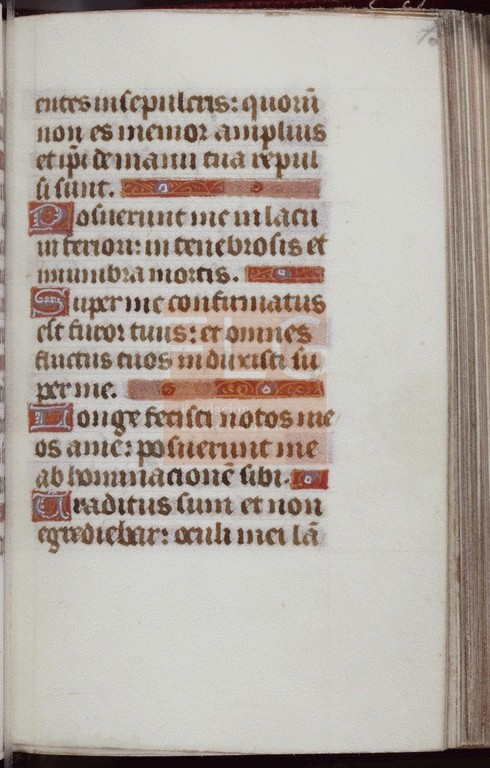 entes in sepulcris: quorū
non es memor amplius
et ip̄i de manu tua repul
si sunt.
Posuerunt me in lacu
inferiori: in tenebrosis et
in umbra mortis.
Super me confirmatus
est furor tuus: et omnes
fluctus tuos induxisti su
per me.
Longe fecisti notos me
os a me: posuerunt me
abhominacionē sibi.
Traditus sum et non
egrediebar: oculi mei lā